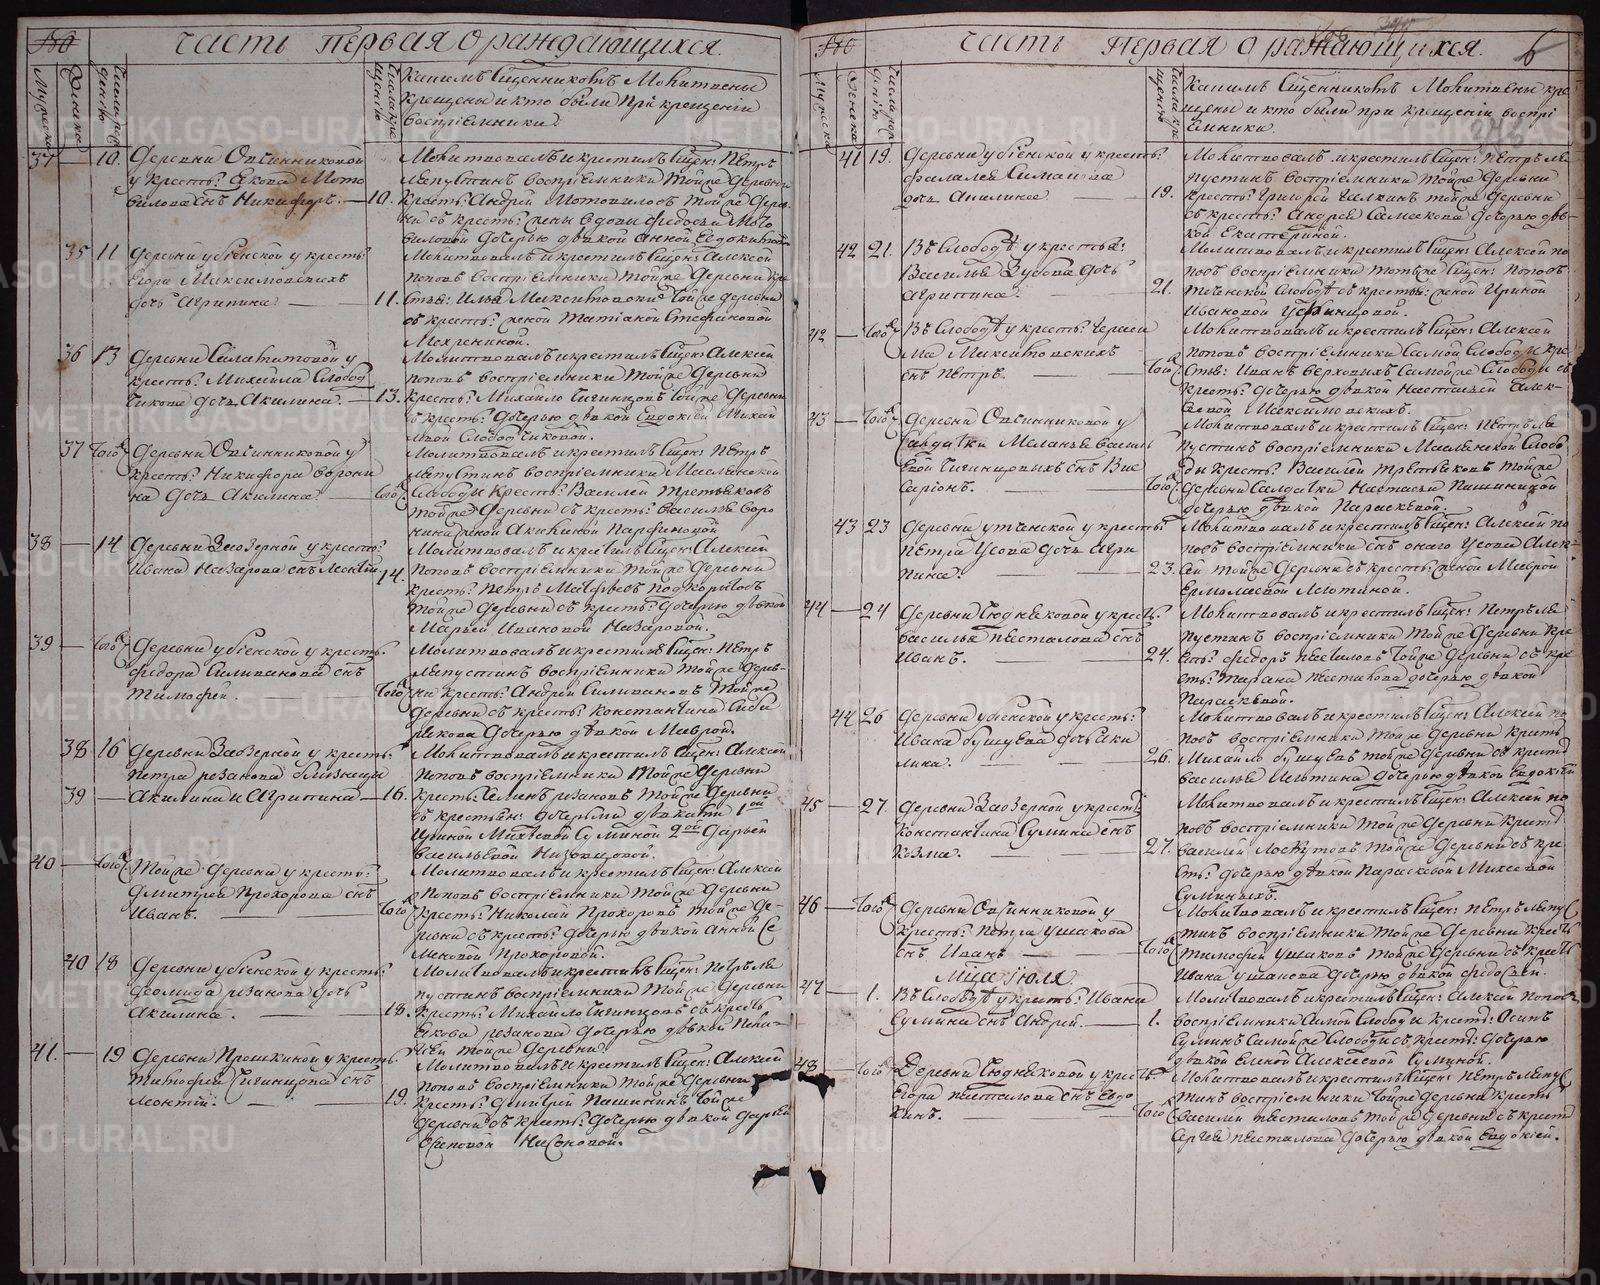 Часть первая о раждающихся.
Мужеска
Женска
Число рож
денію
Число кре
щенію
Какимъ Священникомъ Молитвены
крещены и кто были при крещеніи
воспріемники.
37 10. Деревни Овчинниковой
у крестъ: Якова Мото
вилова снъ Никифоръ. 10.
Молитвовалъ и крестилъ Свщен: Петръ
Лепустинъ воспріемники тойже деревни
крестъ: Андрей Мотовиловъ тойже дерев
ни съ крестъ: жены вдовы Федосьи Мото
виловой дочерью дѣвкой Анной Евдокимо
35 11 деревни убіенской у крестъ:
Егора Максимовскихъ
дочь Агрипина 11.
Молитвовалъ и крестилъ Свщен: Алексѣй
Поповъ воспріемники тойже деревни кре
стья: Илья Максимовскій тойже деревни
съ крестъ: женой Татіаной Стефановой
Мехрениной.
36 13 деревни Салаватовой у
крестъ: Михайла Слобод
чикова дочь Акилина. 13.
Молитвовалъ и крестилъ Свщен: Алексѣй
Поповъ воспріемники тойже деревни
крестъ: Михайло Чигинцовъ тойже деревни
съ крестъ: дочерью дѣвкой Евдокіей Михай
ловой Слободчиковой.
37 того Деревни Овчинниковой у
крестъ: Никифора Ворони
на дочь Акилина. того
Молитвовалъ и крестилъ Свщен: Петръ
Лепустинъ воспріемники Маслянской
Слободы Крестъ: Василей Третьяковъ
тойже деревни съ крестъ: Василья Воро
нина женой Акилиной Парфеновой
38 14 Деревни Заозерной у крестъ:
Ивана Назарова снъ Леонтій. 14.
Молитвовалъ и крестилъ Свщен: Алексѣй
Поповъ воспріемники тойже деревни
крестъ: Петръ Матфѣевъ Подкорытовъ
тойже деревни съ крестъ: дочерью дѣвкой
Марьей Ивановой Назаровой.
39 того Деревни убіенской у крестъ:
Федора Силиванова снъ
Тимофей. того
Молитвовалъ и крестилъ Свщен: Петръ
Лепустинъ воспріемники тойже дерев-
ни крестъ: Андрей Силивановъ тойже
деревни съ крестъ: Константина Сиби
рякова дочерью дѣвкой Маврой.
38 16 Деревни Заозерной у крестъ:
Петра Рязанова близнецы
39 Акилина и Агрипина 16.
Молитвовалъ и крестилъ Свщен: Алексѣй
Поповъ воспріемники тойже деревни
крестъ: Семенъ Рязановъ тойже деревни
съ крестьян: дочерьми дѣвками 1ой
Ириной Михѣевой Суминой 2ой Дарьей
Васильевой Низовцовой.
40 того Тойже деревни у крестъ:
Дмитрея Прохорова снъ
Иванъ. того
Молитвовалъ и крестилъ Свщен: Алексѣй
Поповъ воспріемники тойже деревни
крестъ: Николай Прохоровъ тойже де-
ревни съ крестъ: дочерью дѣвкой Анной Се
меновой Прохоровой.
40 18 Деревни убіенской у крестъ:
Деомида Рязанова дочь
Акилина. 18.
Молитвовалъ и крестилъ Свщен: Петръ Ле
пустинъ воспріемники тойже деревни
крестъ: Михайло Чигинцовъ съ крестъ
Якова Рязанова дочерью дѣвкой
тойже деревни.
41. 19 Деревни Прошкиной у крестъ:
Тимофея Чигинцова снъ
Леонтій. 19.
Молитвовалъ и крестилъ Свщен: Алексѣй
Поповъ воспріемники тойже деревни
крестъ: Дмитрей Пашнинъ тойже
деревни съ крестъ: дочерью дѣвкой Дарьей
Осиповой Нисоновой.
Часть первая о раждающихся. 6
Мужеска
Женска
Число рож
денію
Число кре
щенію
Какимъ Священникомъ Молитвены кре
щены и кто были при крещеніи воспрі
емники.
41 19. Деревни убіенской у крестъ:
Фалалея Симанова
дочь Акилина 19.
Молитвовалъ и крестилъ Свщен: Петръ Ле
пустинъ воспріемники тойже деревни
крестъ: Григорей Галкинъ тойже деревни
съ крестъ: Андрея дочерью дѣв-
кой Екатериной.
42 21. Въ Слободѣ у крестья:
Василья Зубова дочь
Агрипина. 21.
Молитвовалъ и крестилъ Свщен: Алексѣй По
повъ воспріемники тотже Свщен: Поповъ
Теченской Слободѣ съ крестья: женой Ириной
Ивановой Усининцовой.
42 того Въ Слободѣ у крестъ: Гераси
ма Максимовскихъ
снъ Петръ. того
Молитвовалъ и крестилъ Свщен: Алексѣй
Поповъ воспріемники самой Слободы кре
стья: Иванъ Верховыхъ самойже Слободы съ
крестъ: дочерью дѣвкой Настасьей Алек-
сѣевой Максимовскихъ.
43 того Деревни Овчинниковой у
Салдатки Меланьи Василь
евой Чигинцовыхъ снъ Вис
саріонъ. того
Молитвовалъ и крестилъ Свщен: Петръ Ле
пустинъ воспріемники Маслянской Слобо
ды крестъ: Василей Третьяковъ тойже
деревни Салдатки Настасьи Пашниной
дочерью дѣвкой Параскевой.
43 23 деревни утченской у крестъ:
Петра Усова дочь Агри
пина. 23.
Молитвовалъ и крестилъ Свщен: Алексѣй По
повъ воспріемники снъ онаго Усова Алек-
сѣй тойже деревни съ крестъ: женой Маврой
Ермолаевой Лютиной.
44 24 Деревни Чюдняковой у крестъ:
Василья Пѣсталова снъ
Иванъ. 24.
Молитвовалъ и крестилъ Свщен: Петръ Ле
пустинъ воспріемники тойже деревни кре
стъ: Федоръ Пѣсталовъ тойже деревни съ кре
стъ: Тараса Пѣсталова дочерью дѣвкой
Параскевой.
44 26 деревни убіенской у крестъ:
Ивана Бушуева дочь Аки
лина. 26.
Молитвовалъ и крестилъ Свщен: Алексѣй По
повъ воспріемники тойже деревни крестъ
Михайло Бушуевъ тойже деревни съ крестъ
Василья Лютина дочерью дѣвкой Евдокіей
45 27. Деревни Заозерной у крестъ:
Константина Сумина снъ
Козма. 27.
Молитвовалъ и крестилъ Свщен: Алексѣй По
повъ воспріемники тойже деревни крестъ
Василей Лоскутовъ тойже деревни съ кре
стъ: дочерью дѣвкой Параскевой Михѣевой
Суминыхъ.
46 того Деревни Овчинниковой у
крестъ: Петра Ушакова
снъ Иванъ того
Молитвовалъ и крестилъ Свщен: Петръ Лепус
тинъ воспріемники тойже деревни крестъ
Тимофей Ушаковъ тойже деревни съ крестъ
Ивана Ушакова дочерью дѣвкой Федосьей.
Мца Іюля
47 1. Въ Слободѣ у крестъ: Ивана
Сумина снъ Андрей. 1.
Молитвовалъ и крестилъ Свщен: Алексѣй Поповъ
воспріемники самой Слободы крестъ: Осипъ
Суминъ самойже Слободы съ крестъ: дочерью
дѣвкой Еленой Алексѣевой Суминой.
48 того Деревни Чюдняковой у крестъ:
Егора Пѣсталова снъ Евдо
кимъ. того
Молитвовалъ и крестилъ Свщен: Петръ Лепус
тинъ воспріемники тойже деревни крестъ
Василей Пѣсталовъ тойже деревни съ крестъ
Сергея Пѣсталова дочерью дѣвкой Евдокіей.
METRIKI.GASO-URAL.RU